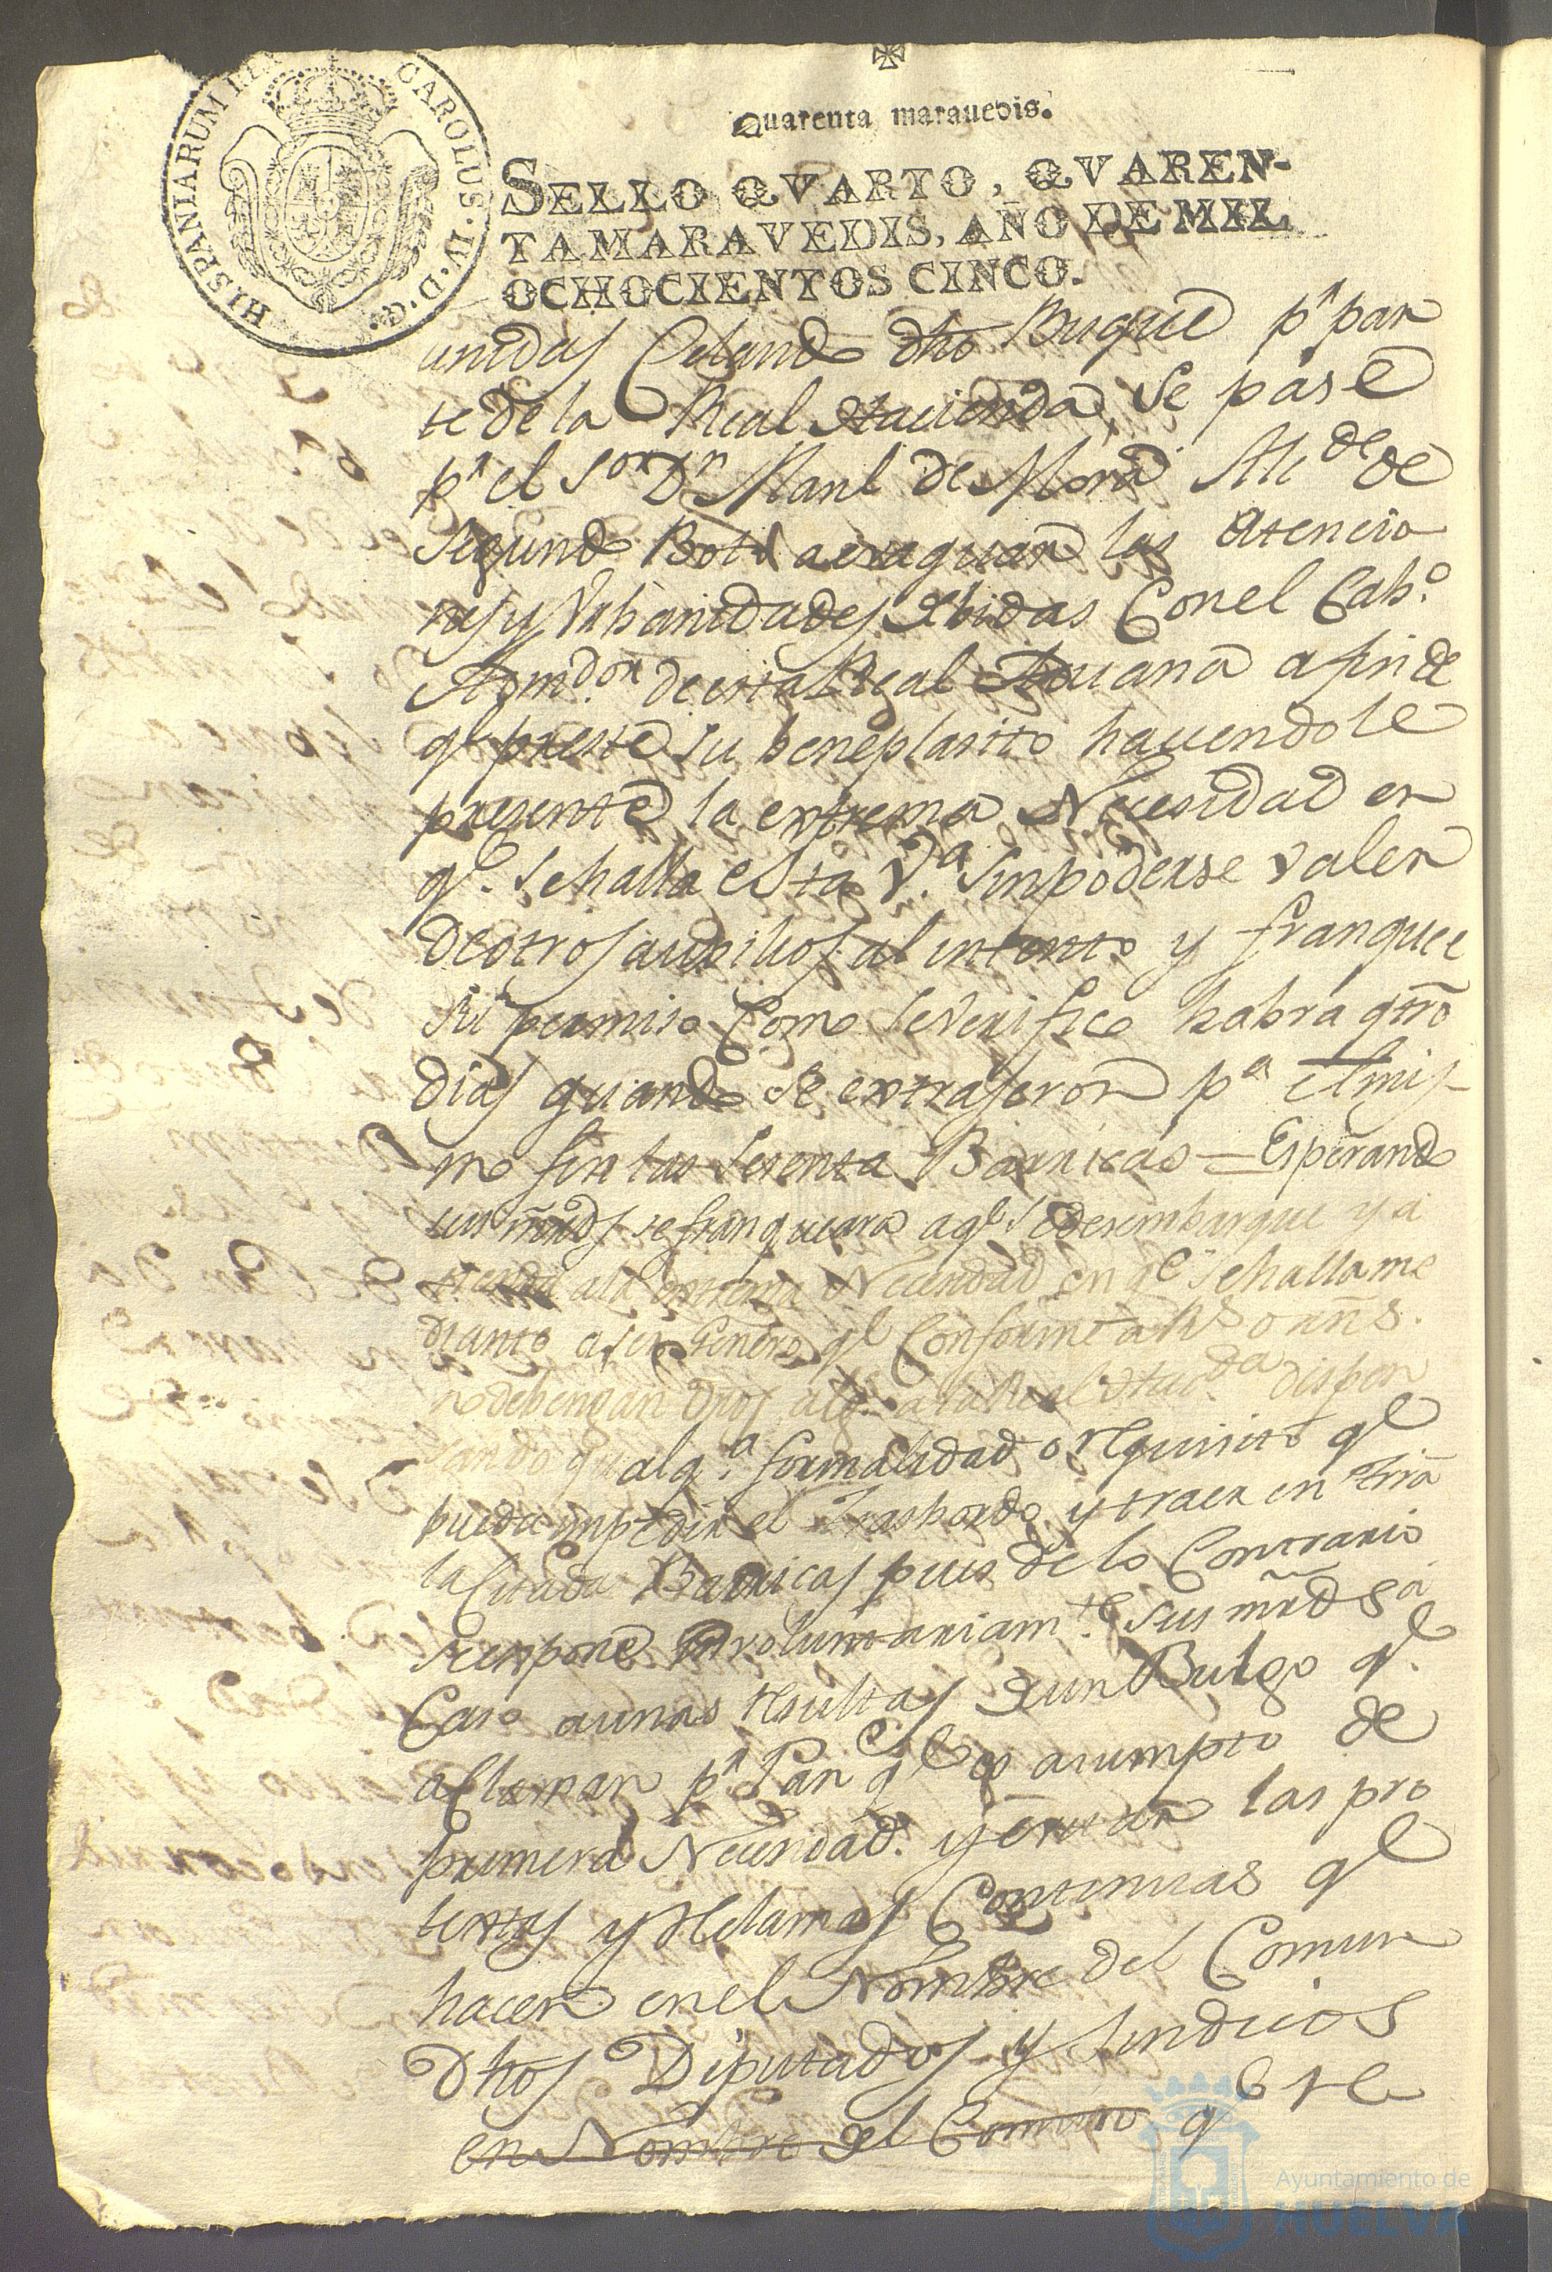 HISPANIARUM REX CAROLUS·IV·D·G·
Quarenta maravedis.
SELLO QVARTO, QVAREN-
TA MARAVEDIS, AÑO DE MIL
OCHOCIENTOS CINCO.
unidas Celando dho Buque pr par
te de la Real Hacienda, se pase
pr el Sor Dn Manl de Mora Alde de
Segundo Boto a evaquar las atencio
nes y Urbanidades devidas Con el Cabo.
Admdor. de esta Real Aduana a fin de
qe preste su beneplasito haciendole
presente la extrema Necesidad en
qe. se halla esta Va. sin poderse valer
de otros auxilios al intento y franquee
su permiso Como se verifico habra qtro
dias quando se extrageron pa el mis-
mo fin las sesenta Barricas = Esperando
sus mrds se franqueara a qe se desembarque y a
tienda a la extrema Necesidad en qe se halla me
diante a ser Genero qe Conforme a Rs orns.
no debengan dros algs. a la Real Hacda dispen
sando qualqa. formalidad o requisito qe
pueda impedir el Trasbordo y traer en trra
la Citada Barricas pues de lo Contrario
se expone involuntariamte. sus mrds a
Caso a unas resultas de un Bulgo qe.
a Claman pr Pan qe es asumpto de
primera Necesidad. y evitar las pro
textas y reclamos Continuas qe
hacen en el Nombre del Comun
Dhos Diputados y Sindicos
en Nombre del Comun qe
Ayuntamiento de
HUELVA